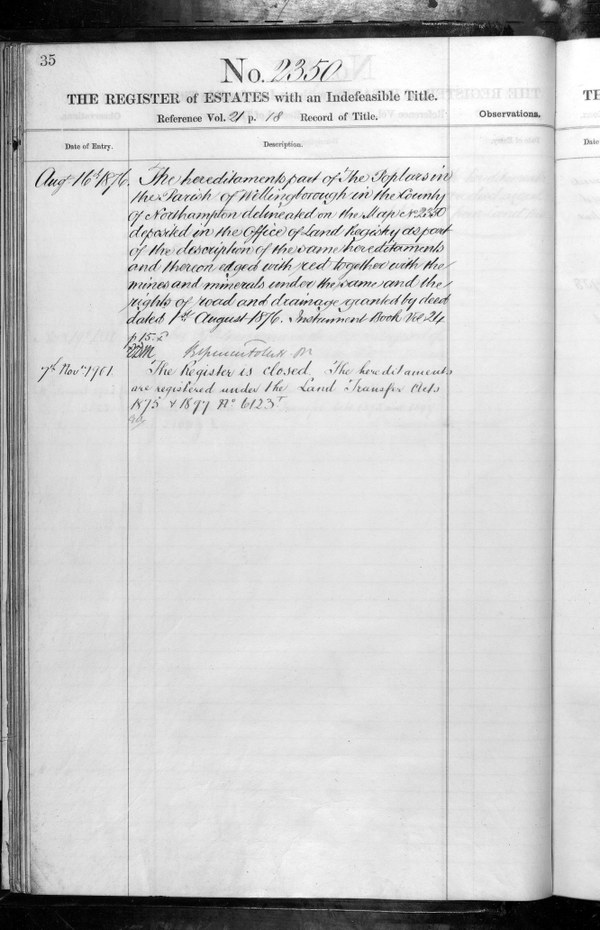 35
No. 2350
THE REGISTER of ESTATES with an Indefeasible Title.
Reference Vol. 21 p. 18 Record of Title.
Observations.
Date of Entry.
Description.
Augt 16th 1876. The hereditaments part of The Poplars in
the Parish of Wellingborough in the County
of Northampton delineated on the Map No 2350
deposited in the Office of Land Registry as part
of the description of the same hereditaments
and thereon edged with red together with the
mines and minerals under the same and the
rights of road and drainage granted by deed
dated 1st August 1876. Instrument Book Vol. 24
p 15
7th Novr 1901 The Register is closed. The hereditaments
are registered under the Land Transfer Acts
1875 & 1897 No 6123
TH
Date